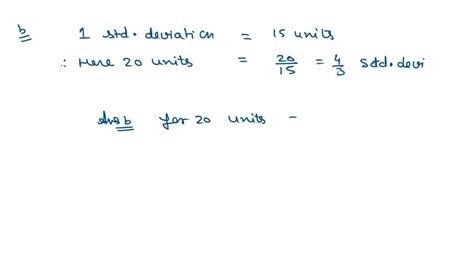 b 1 std. deviation = 15 units
∴ Here 20 units = 20/15 = 4/3 std. devi
Ans b for 20 units -